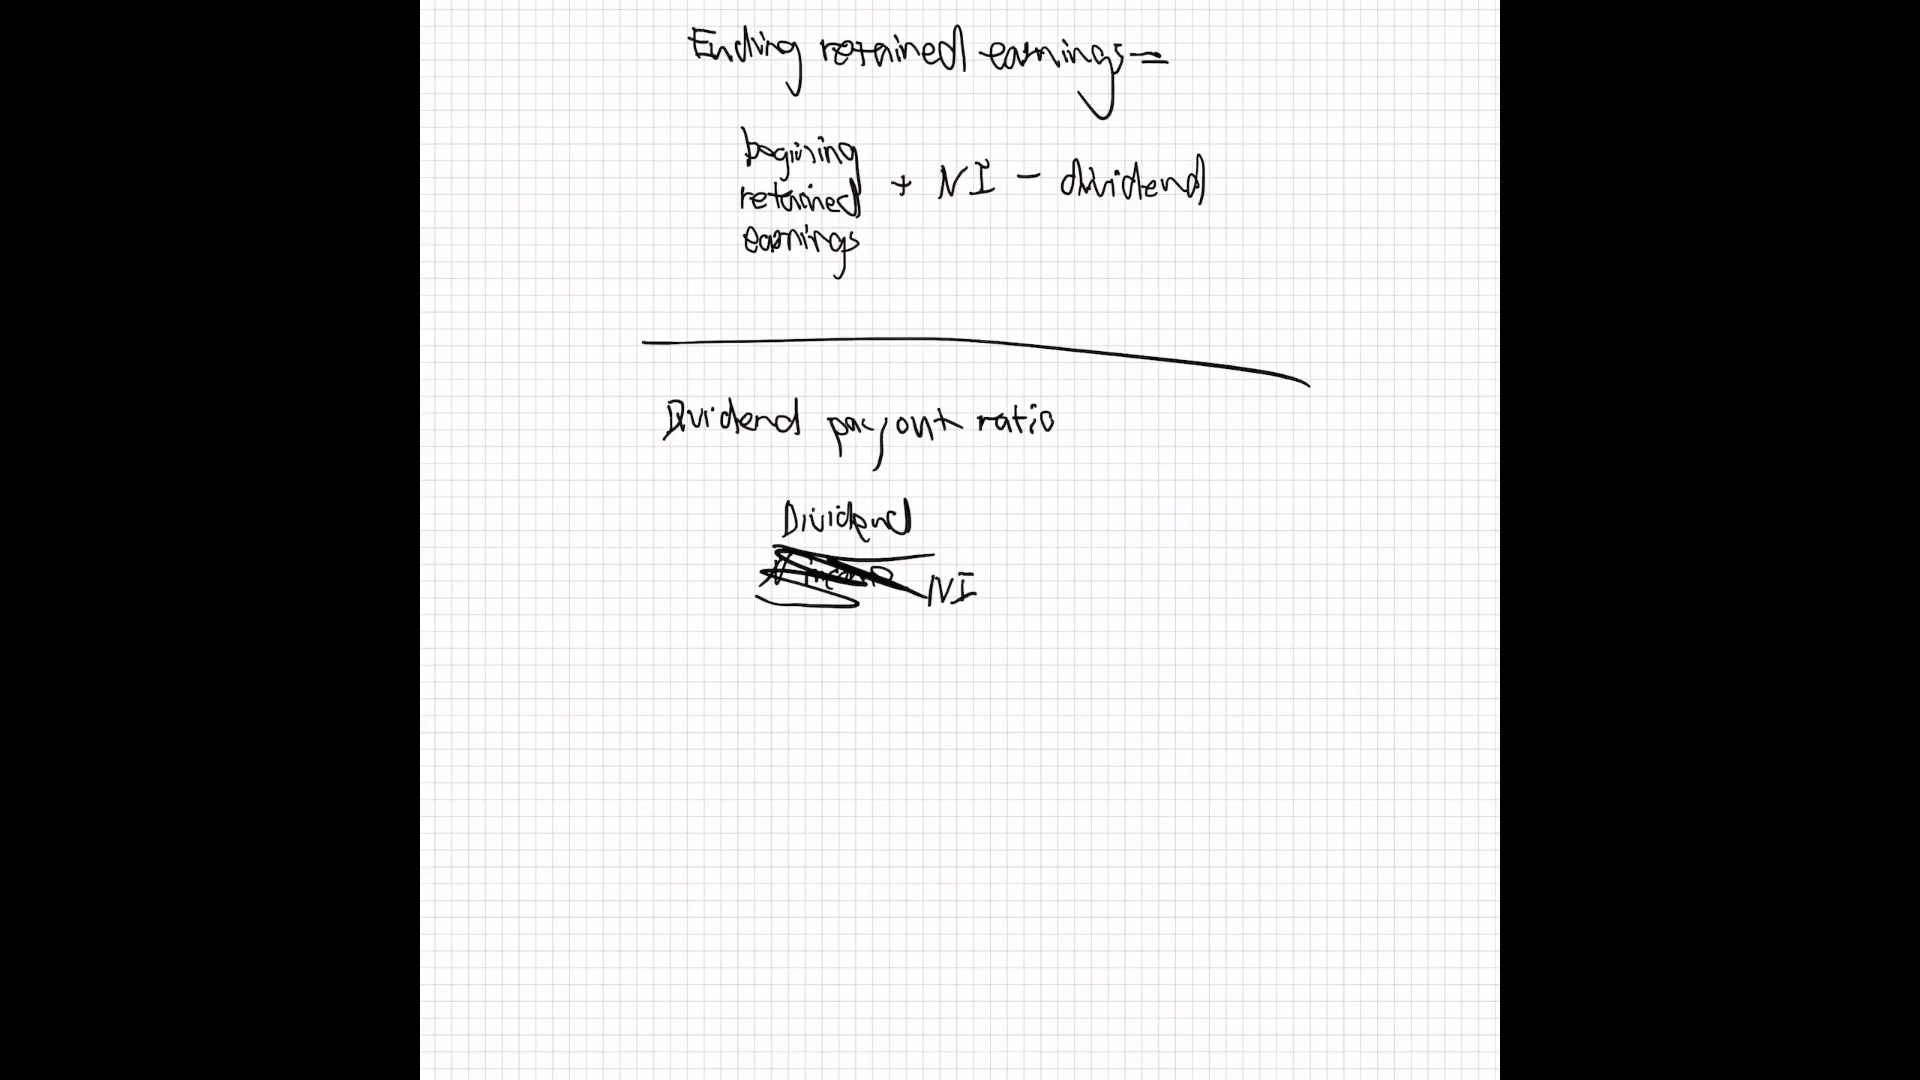 Ending retained earnings=
begining
retained
earnings
+ NI - dividend
Dividend payout ratio
Dividend
NI